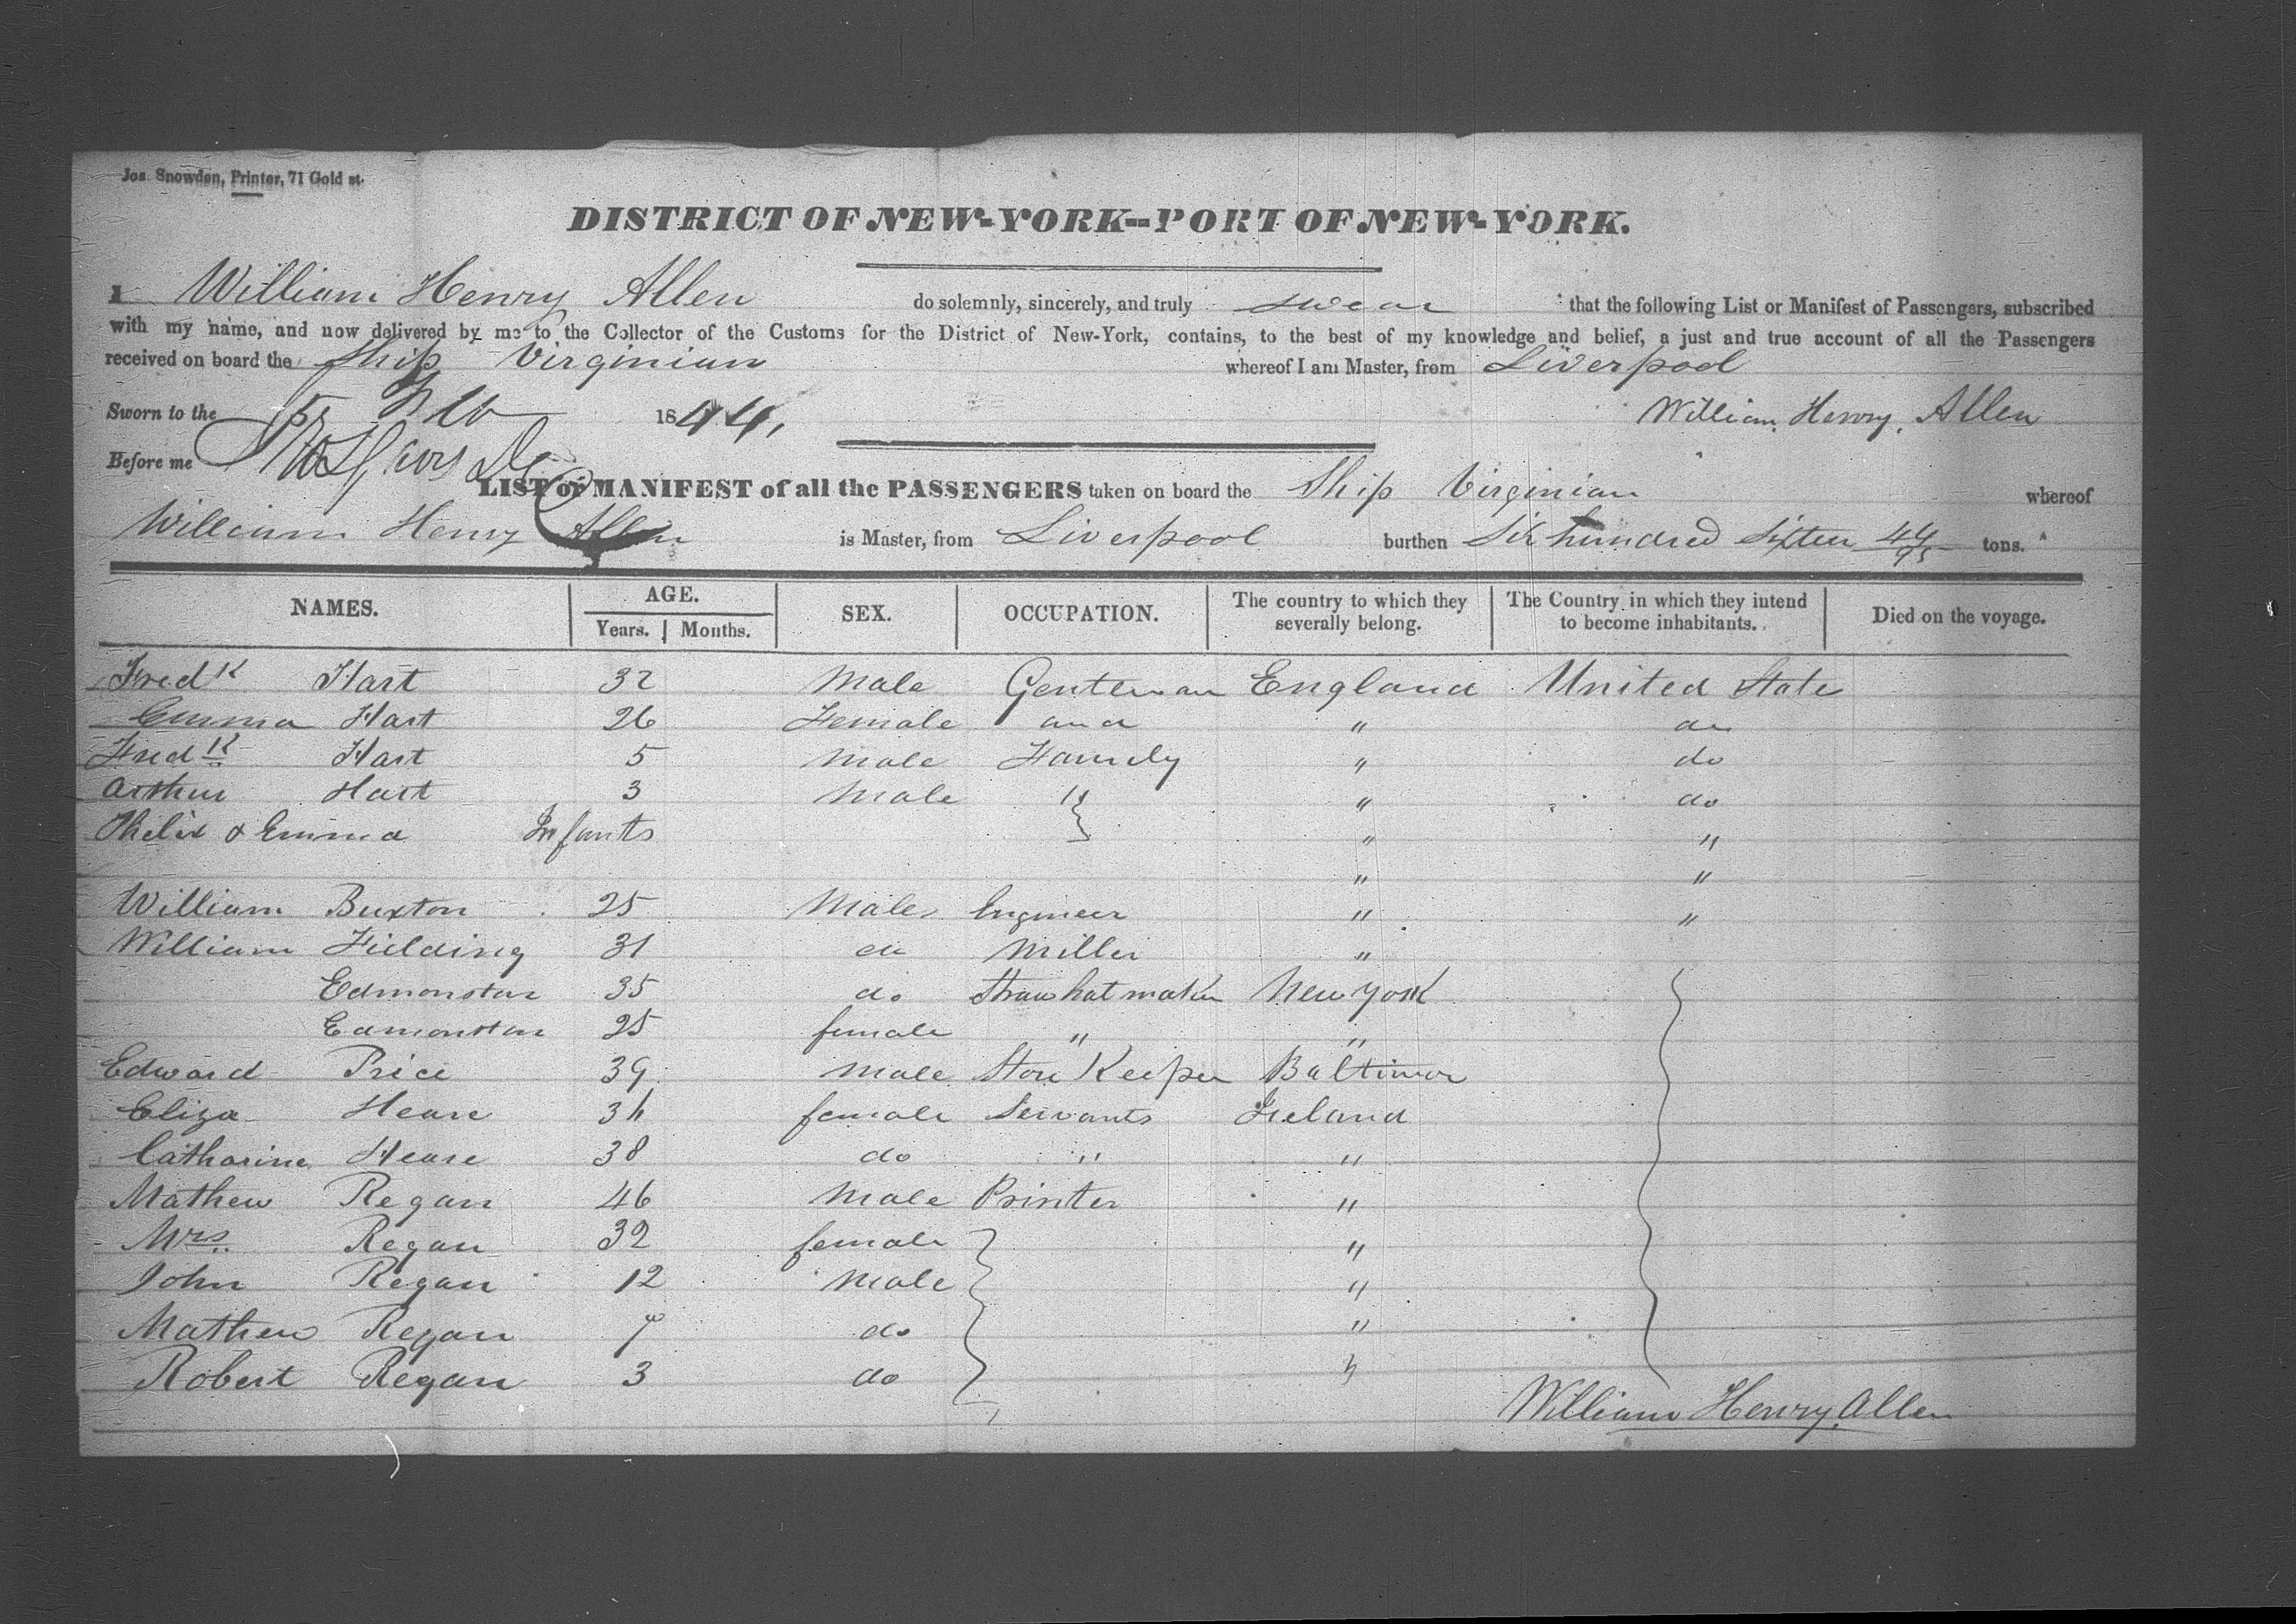 Jos. Snowden, Printer, 71 Gold st.
DISTRICT OF NEW-YORK--PORT OF NEW-YORK.
I William Henry Allen do solemnly, sincerely, and truly swear that the following List or Manifest of Passengers, subscribed
with my name, and now delivered by me to the Collector of the Customs for the District of New-York, contains, to the best of my knowledge and belief, a just and true account of all the Passengers
received on board the Ship Virginian whereof I am Master, from Liverpool
Sworn to the Feb 1844, William Henry Allen
Before me
LIST or MANIFEST of all the PASSENGERS taken on board the Ship Virginian whereof
William Henry Allen is Master, from Liverpool burthen Six hundred Sixteen 44/95 tons.
NAMES. AGE. Years. Months. SEX. OCCUPATION. The country to which they severally belong. The Country in which they intend to become inhabitants. Died on the voyage.
Fredk Hart 32 Male Gentleman England United State
Emma Hart 26 Female and " do
Fredk Hart 5 Male Family " do
Arthur Hart 3 Male " " do
Phelix & Emma Infants " "
" "
William Buxton 25 Male Engineer " "
William Fielding 31 do Miller "
Edmonston 35 do Straw hat maker New York
Edmonston 25 female " "
Edward Price 39 Male Store Keeper Baltimor
Eliza Hease 34 female Servants Ireland
Catharine Hease 38 do " "
Mathew Regan 46 Male Printer "
Mrs Regan 32 female "
John Regan 12 Male "
Mathew Regan 7 do "
Robert Regan 3 do "
William Henry Allen